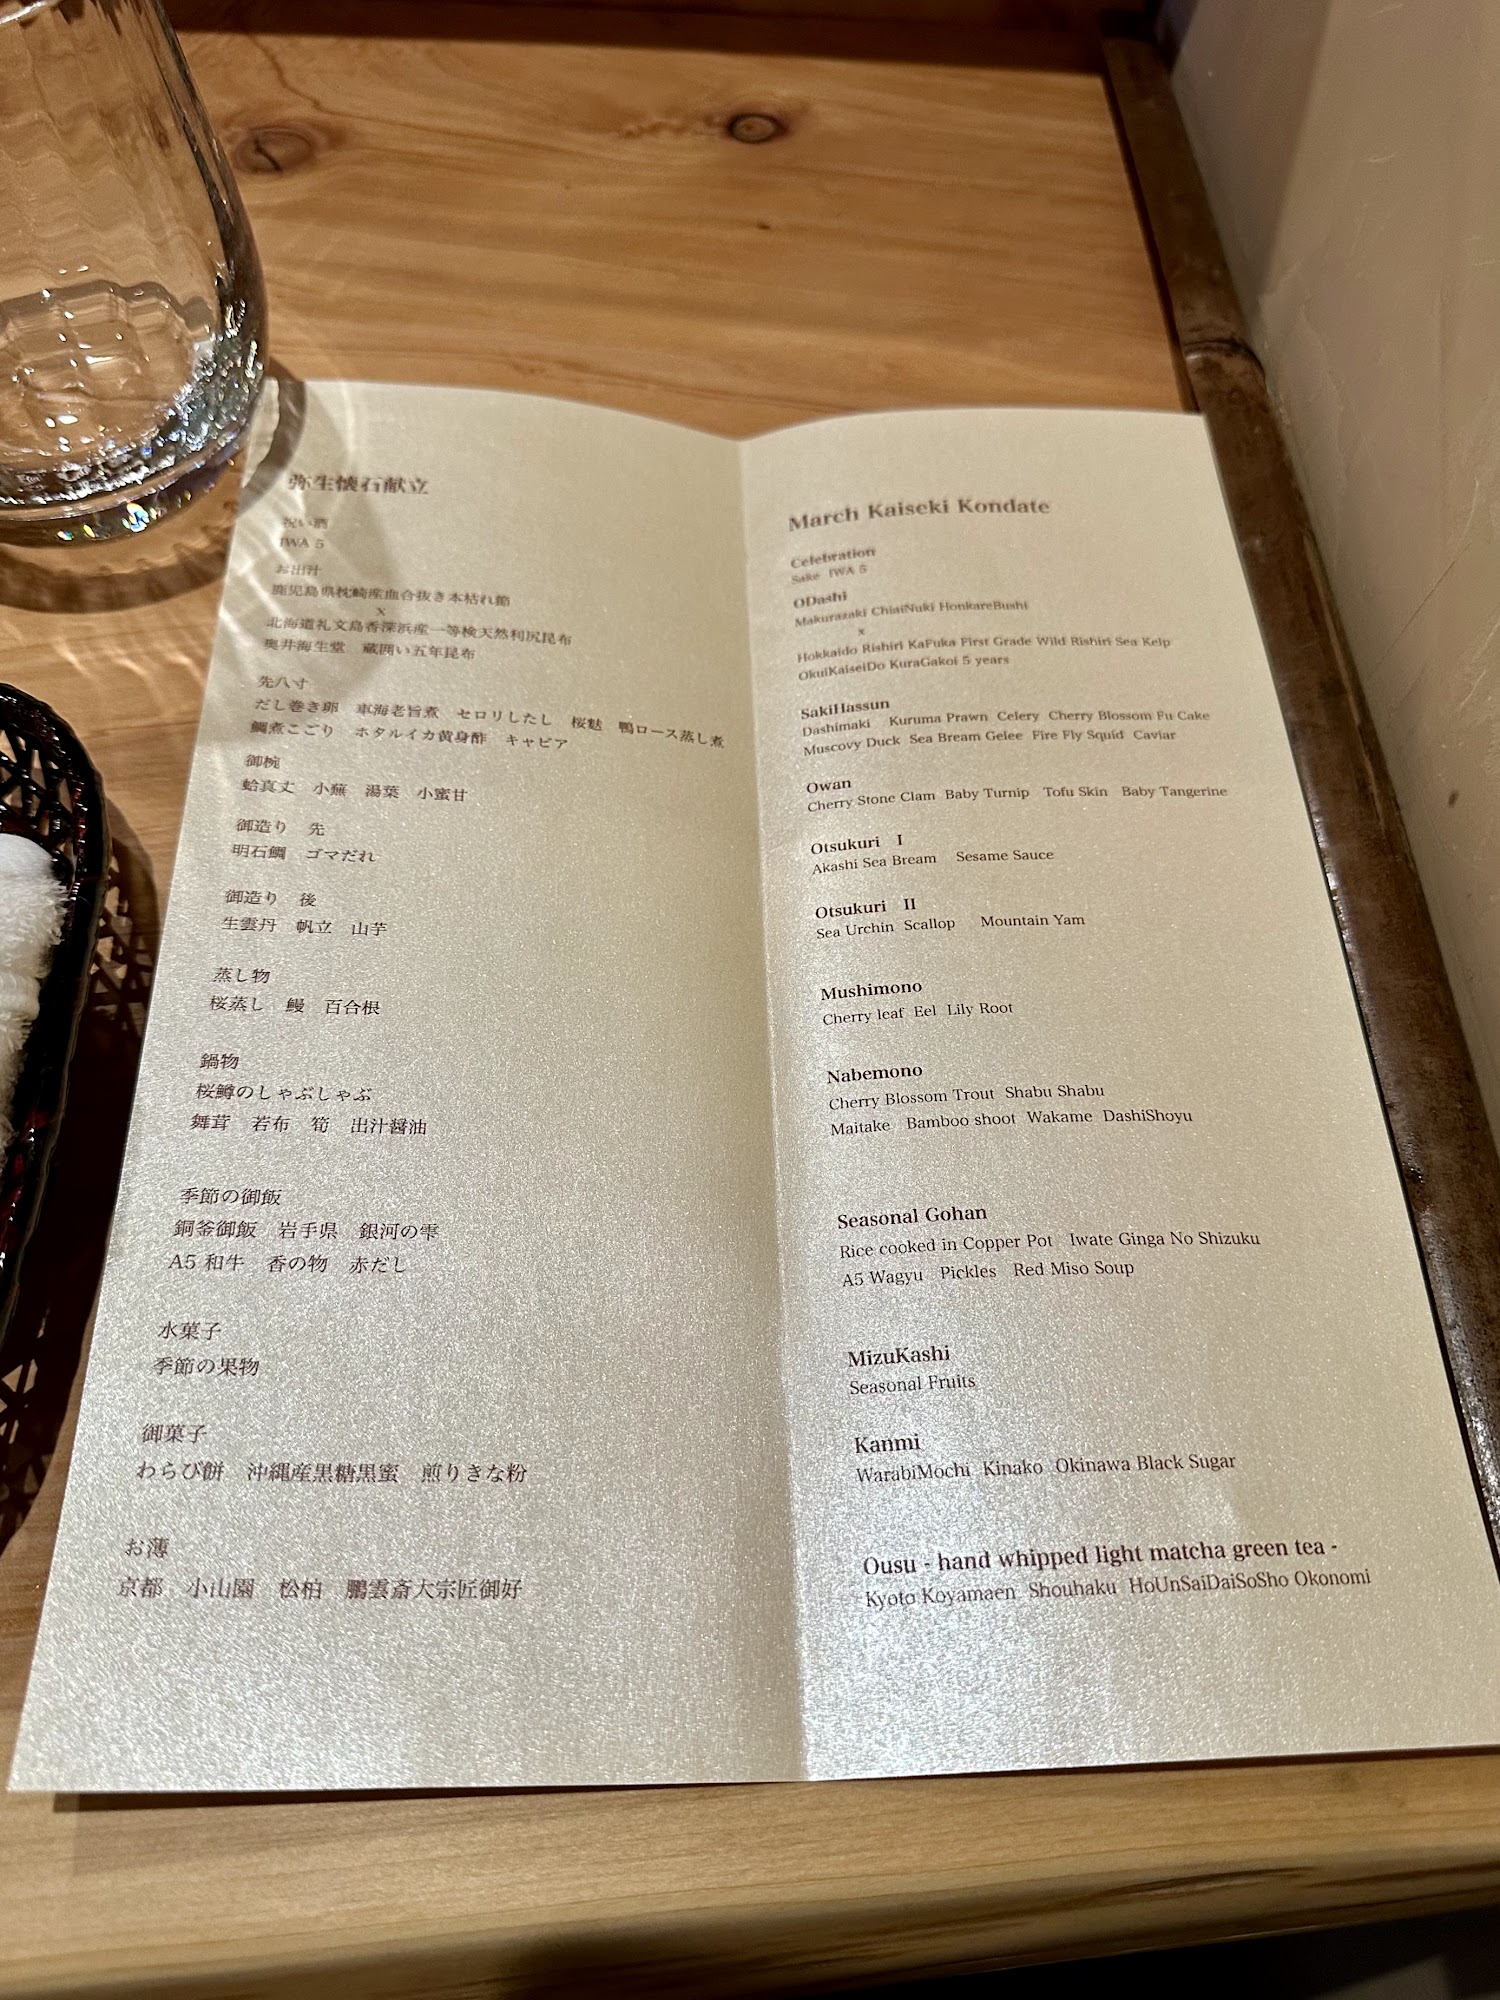 弥生懐石献立
祝い酒
IWA 5
お出汁
鹿児島県枕崎産血合抜き本枯れ節
x
北海道礼文島香深浜産一等検天然利尻昆布
奥井海生堂　蔵囲い五年昆布
先八寸
だし巻き卵　車海老旨煮　セロリしたし　桜麩　鴨ロース蒸し煮
鯛煮こごり　ホタルイカ黄身酢　キャビア
御椀
蛤真丈　小蕪　湯葉　小蜜甘
御造り　先
明石鯛　ゴマだれ
御造り　後
生雲丹　帆立　山芋
蒸し物
桜蒸し　鰻　百合根
鍋物
桜鱒のしゃぶしゃぶ
舞茸　若布　筍　出汁醤油
季節の御飯
銅釜御飯　岩手県　銀河の雫
A5 和牛　香の物　赤だし
水菓子
季節の果物
御菓子
わらび餅　沖縄産黒糖黒蜜　煎りきな粉
お薄
京都　小山園　松柏　鵬雲斎大宗匠御好
March Kaiseki Kondate
Celebration
Sake IWA 5
ODashi
Makurazaki ChiaiNuki HonkareBushi
x
Hokkaido Rishiri KaFuka First Grade Wild Rishiri Sea Kelp
OkuiKaiseiDo KuraGakoi 5 years
SakiHassun
Dashimaki Kuruma Prawn Celery Cherry Blossom Fu Cake
Muscovy Duck Sea Bream Gelee Fire Fly Squid Caviar
Owan
Cherry Stone Clam Baby Turnip Tofu Skin Baby Tangerine
Otsukuri I
Akashi Sea Bream Sesame Sauce
Otsukuri II
Sea Urchin Scallop Mountain Yam
Mushimono
Cherry leaf Eel Lily Root
Nabemono
Cherry Blossom Trout Shabu Shabu
Maitake Bamboo shoot Wakame DashiShoyu
Seasonal Gohan
Rice cooked in Copper Pot Iwate Ginga No Shizuku
A5 Wagyu Pickles Red Miso Soup
MizuKashi
Seasonal Fruits
Kanmi
WarabiMochi Kinako Okinawa Black Sugar
Ousu - hand whipped light matcha green tea -
Kyoto Koyamaen Shouhaku HoUnSaiDaiSoSho Okonomi